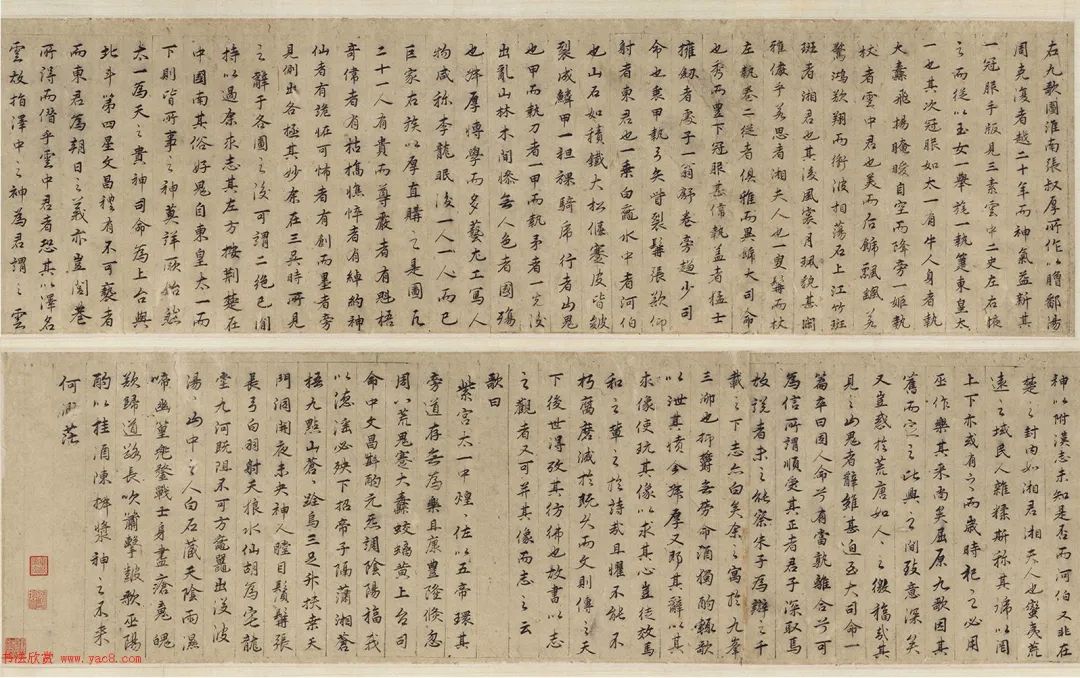 右九歌圖淮南張叔厚所作以贈鄱陽
周克復者越二十年而神氣益新其
一冠服手版見三素雲中二史左右掖
之而從以玉女一舉旄一執篲東皇太
一也其次冠服如太一有牛人身者執
大纛飛揚晻曖自空而降旁一姬執
杖者雲中君也美而后飾飄飄若
驚鴻欻翔而衝波相蕩石上江竹班
班者湘君也其淩風裳月珮貌甚閑
雅儼乎若思者湘夫人也一叟髯而杖
左執卷二從者俱雅而異飾大司命
也秀而豐下冠服甚偉執蓋者猛士
擁劔者處子一翁舒卷旁趨少司
命也乗甲執弓矢眥裂髯張欻仰
射者東君也一乗白黿水中者河伯
也山石如積鐵大松偃蹇皮皆皴
裂成鱗甲一袒裸騎席行者山鬼
也甲而執刀者一甲而執矛者一先後
出亂山林木間慘無人色者國殤
也叔厚博學而多藝尤工寫人
物咸稱李龍眠後一人一人而已
巨家右族以厚直購之是圖凡
二十一人有貴而尊嚴者有魁梧
奇偉者有枯槁憔悴者有綽約神
仙者有詭恠可怖者有創而墨者旁
見側出各極其妙余在三吴時所見
之辭于各圖之後可謂二絕已間
持以過余求志其左方按荆楚在
中國南其俗好鬼自東皇太一而
下則皆所事之神莫詳厥始然
太一為天之貴神司命為上台與
北斗第四星文昌禮有不可褻者
而東君為朝日之義亦豈閭巷
所得而僭乎雲中君者恐其以澤名
雲故指澤中之神為君謂之雲
神以附漢志未知是否而河伯又非在
楚之封內如湘君湘夫人也蠻夷荒
遠之域民人雜糅斯祢其諦以罔
上下亦或有之而歲時祀之必用
巫作樂其来尚矣屈原九歌因其
舊而定之比興之間致意深矣
又豈惑於荒唐如人之徼福哉其
見之山鬼者辭雖甚迫至大司命一
篇卒曰固人命兮有當孰離合兮可
為信所謂順受其正者君子深取焉
故説者未之能察朱子為辯之千
載之下志亦白矣余之寓於九峯
三泖也抑欝無勞命酒獨酌輙歌
以泄其憤今叔厚又即其辭以
求像使玩其像以求其心豈徒效馬
和之軰之於詩哉且懼不能不
朽腐磨滅於既久而文則傳之天
下後世得攷其彷彿也故書以志
之觀者又可并其像而志之云
歌曰
紫宮太一中煌煌佐以五帝環其
旁道存無為樂且康豐隆倏忽
周八荒鬼蹇大纛蛟螭黃上台司
命中文昌斟酌元炁調陰陽福我
以德滛必殃下招帝子隔瀟湘蒼
梧九點山蒼蒼跧烏三足升扶桑天
門洞開夜未央神人瞠目鬚髯張
長弓白羽射天狼水仙胡為宅龍
堂九河既阻不可方黿鼉出没波
湯湯山中之人白石藏天陰雨濕
啼幽篁兜鍪戰士身盡瘡竟魄
欻歸道路長吹簫擊鼓歌巫陽
酌以桂酒陳椒漿神之不来
何渺茫
书法欣赏 www.yac8.com